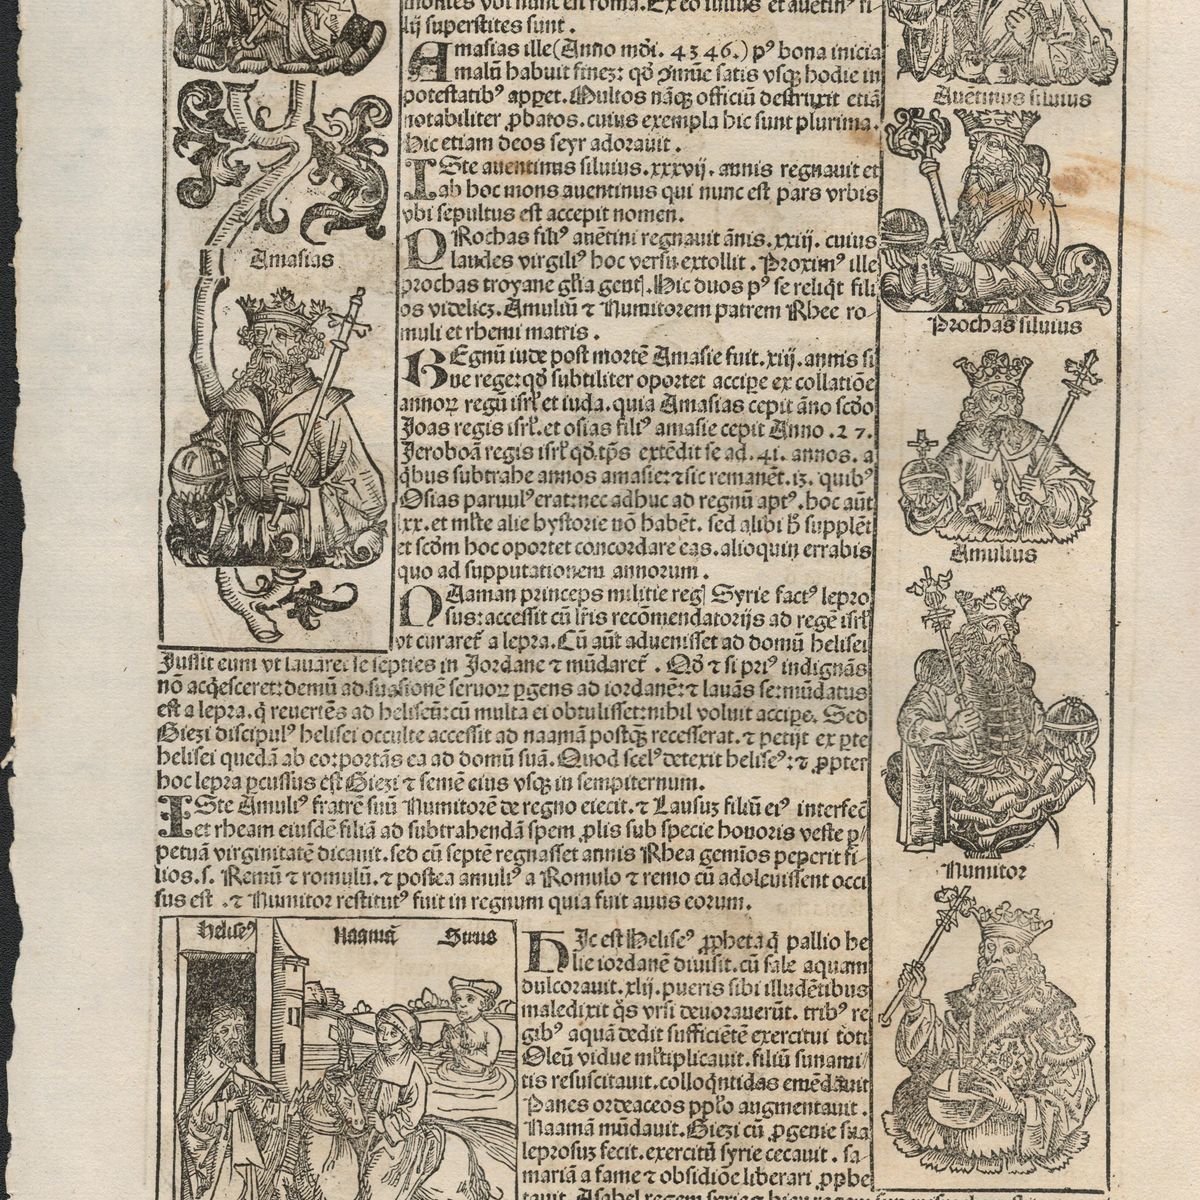 montes vbi nunc est roma. Ex eo iulius et auetin⁹ fi
lij superstites sunt .
Amasias ille (Anno mūdi. 4346.) p⁹ bona inicia
malū habuit finez: qd̄ satis vsqꝫ hodie in
potestatib⁹ apꝑet. Multos nāqꝫ officiū destruxit etiā
notabiliter ꝓbatos. cuius exempla hic sunt plurima.
Hic etiam deos seyr adorauit .
ISte auentinus siluius. xxxvij. annis regnauit et
ab hoc mons auentinus qui nunc est pars vrbis
vbi sepultus est accepit nomen.
PRochas fili⁹ auētini regnauit ānis. xxiij. cuius
laudes virgili⁹ hoc versu extollit . Proxim⁹ ille
prochas troyane gl̄ia gentꝭ. Hic duos p⁹ se reliqt fili
os videlicz. Amuliū ⁊ Numitorem patrem Rhee ro-
muli et rhemi matris .
REgnū iude post mortē Amasie fuit. xiij. annis si
ne rege: qd̄ subtiliter oportet accipe ex collatiōe
annoꝝ regū isrl̄ et iuda. quia Amasias cepit āno scd̄o
Joas regis isrl̄. et osias fili⁹ amasie cepit Anno .27.
Jeroboā regis isrl̄ qd̄. tp̄s extēdit se ad. 41. annos. a
qbus subtrahe annos amasie: ⁊ sic remanēt. 13. quib⁹
Osias paruul⁹ erat: nec adhuc ad regnū apt⁹. hoc aūt
lxx. et ml̄te alie hystorie nō habēt. sed alibi h̄ supplēt
et scd̄m hoc oportet concordare eas. alioquin errabis
quo ad supputationem annorum .
NAaman princeps militie regꝭ Syrie fact⁹ lepro
sus: accessit cū lr̄is recōmendatorijs ad regē isrl̄
vt curaret̄ a lepra. Cū aūt aduenisset ad domū helisei
Jussit eum vt lauaret se septies in Jordane ⁊ mūdaret̄ . Qd̄ ⁊ si pri⁹ indignās
nō acqesceret: demū ad suasionē seruoꝝ ꝑgens ad iordanē: ⁊ lauās se: mūdatus
est a lepra. q̄ reuertēs ad heliseū: cū multa ei obtulisset: nihil voluit accipe. Sed
Giezi discipul⁹ helisei occulte accessit ad naamā postqꝫ recesserat. ⁊ petijt ex ꝑte
helisei quedā ab eo: portās ea ad domū suā. Quod scel⁹ detexit helise⁹: ⁊ ꝓpter
hoc lepra ꝑcussus est Giezi ⁊ semē eius vsqꝫ in sempiternum.
ISte Amuli⁹ fratrē suū Numitorē de regno eiecit. ⁊ Lausuz filiū ei⁹ interfec̄
et rheam eiusdē filiā ad subtrahendā spem ꝓlis sub specie honoris veste ꝑ-
petuā virginitatē dicauit. sed cū septē regnasset annis Rhea gemīos peperit fi-
lios. s. Remū ⁊ romulū. ⁊ postea amuli⁹ a Romulo ⁊ remo cū adoleuissent occi
sus est . ⁊ Numitor restitut⁹ fuit in regnum quia fuit auus eorum.
HJc est Helise⁹ ꝓpheta q̄ pallio he
lie iordanē diuisit. cū sale aquam
dulcorauit. xlij. pueris sibi illudētibus
maledixit q̄s vrsi deuorauerūt. trib⁹ re
gib⁹ aquā dedit sufficiētē exercitui toti
Oleū vidue ml̄tiplicauit. filiū sunami-
tis resuscitauit. colloqntidas emēdauit
Panes ordeaceos pp̄lo augmentauit.
Naamā mūdauit. Giezi cū ꝓgenie sua
leprosuz fecit. exercitū syrie cecauit. sa
mariā a fame ⁊ obsidiōe liberari ꝓphe
tauit. Asahel regem syrie
Amasias
Auētinus siluius
Prochas siluius
Amulius
Numitor
Helise⁹
Naamā
Sirus